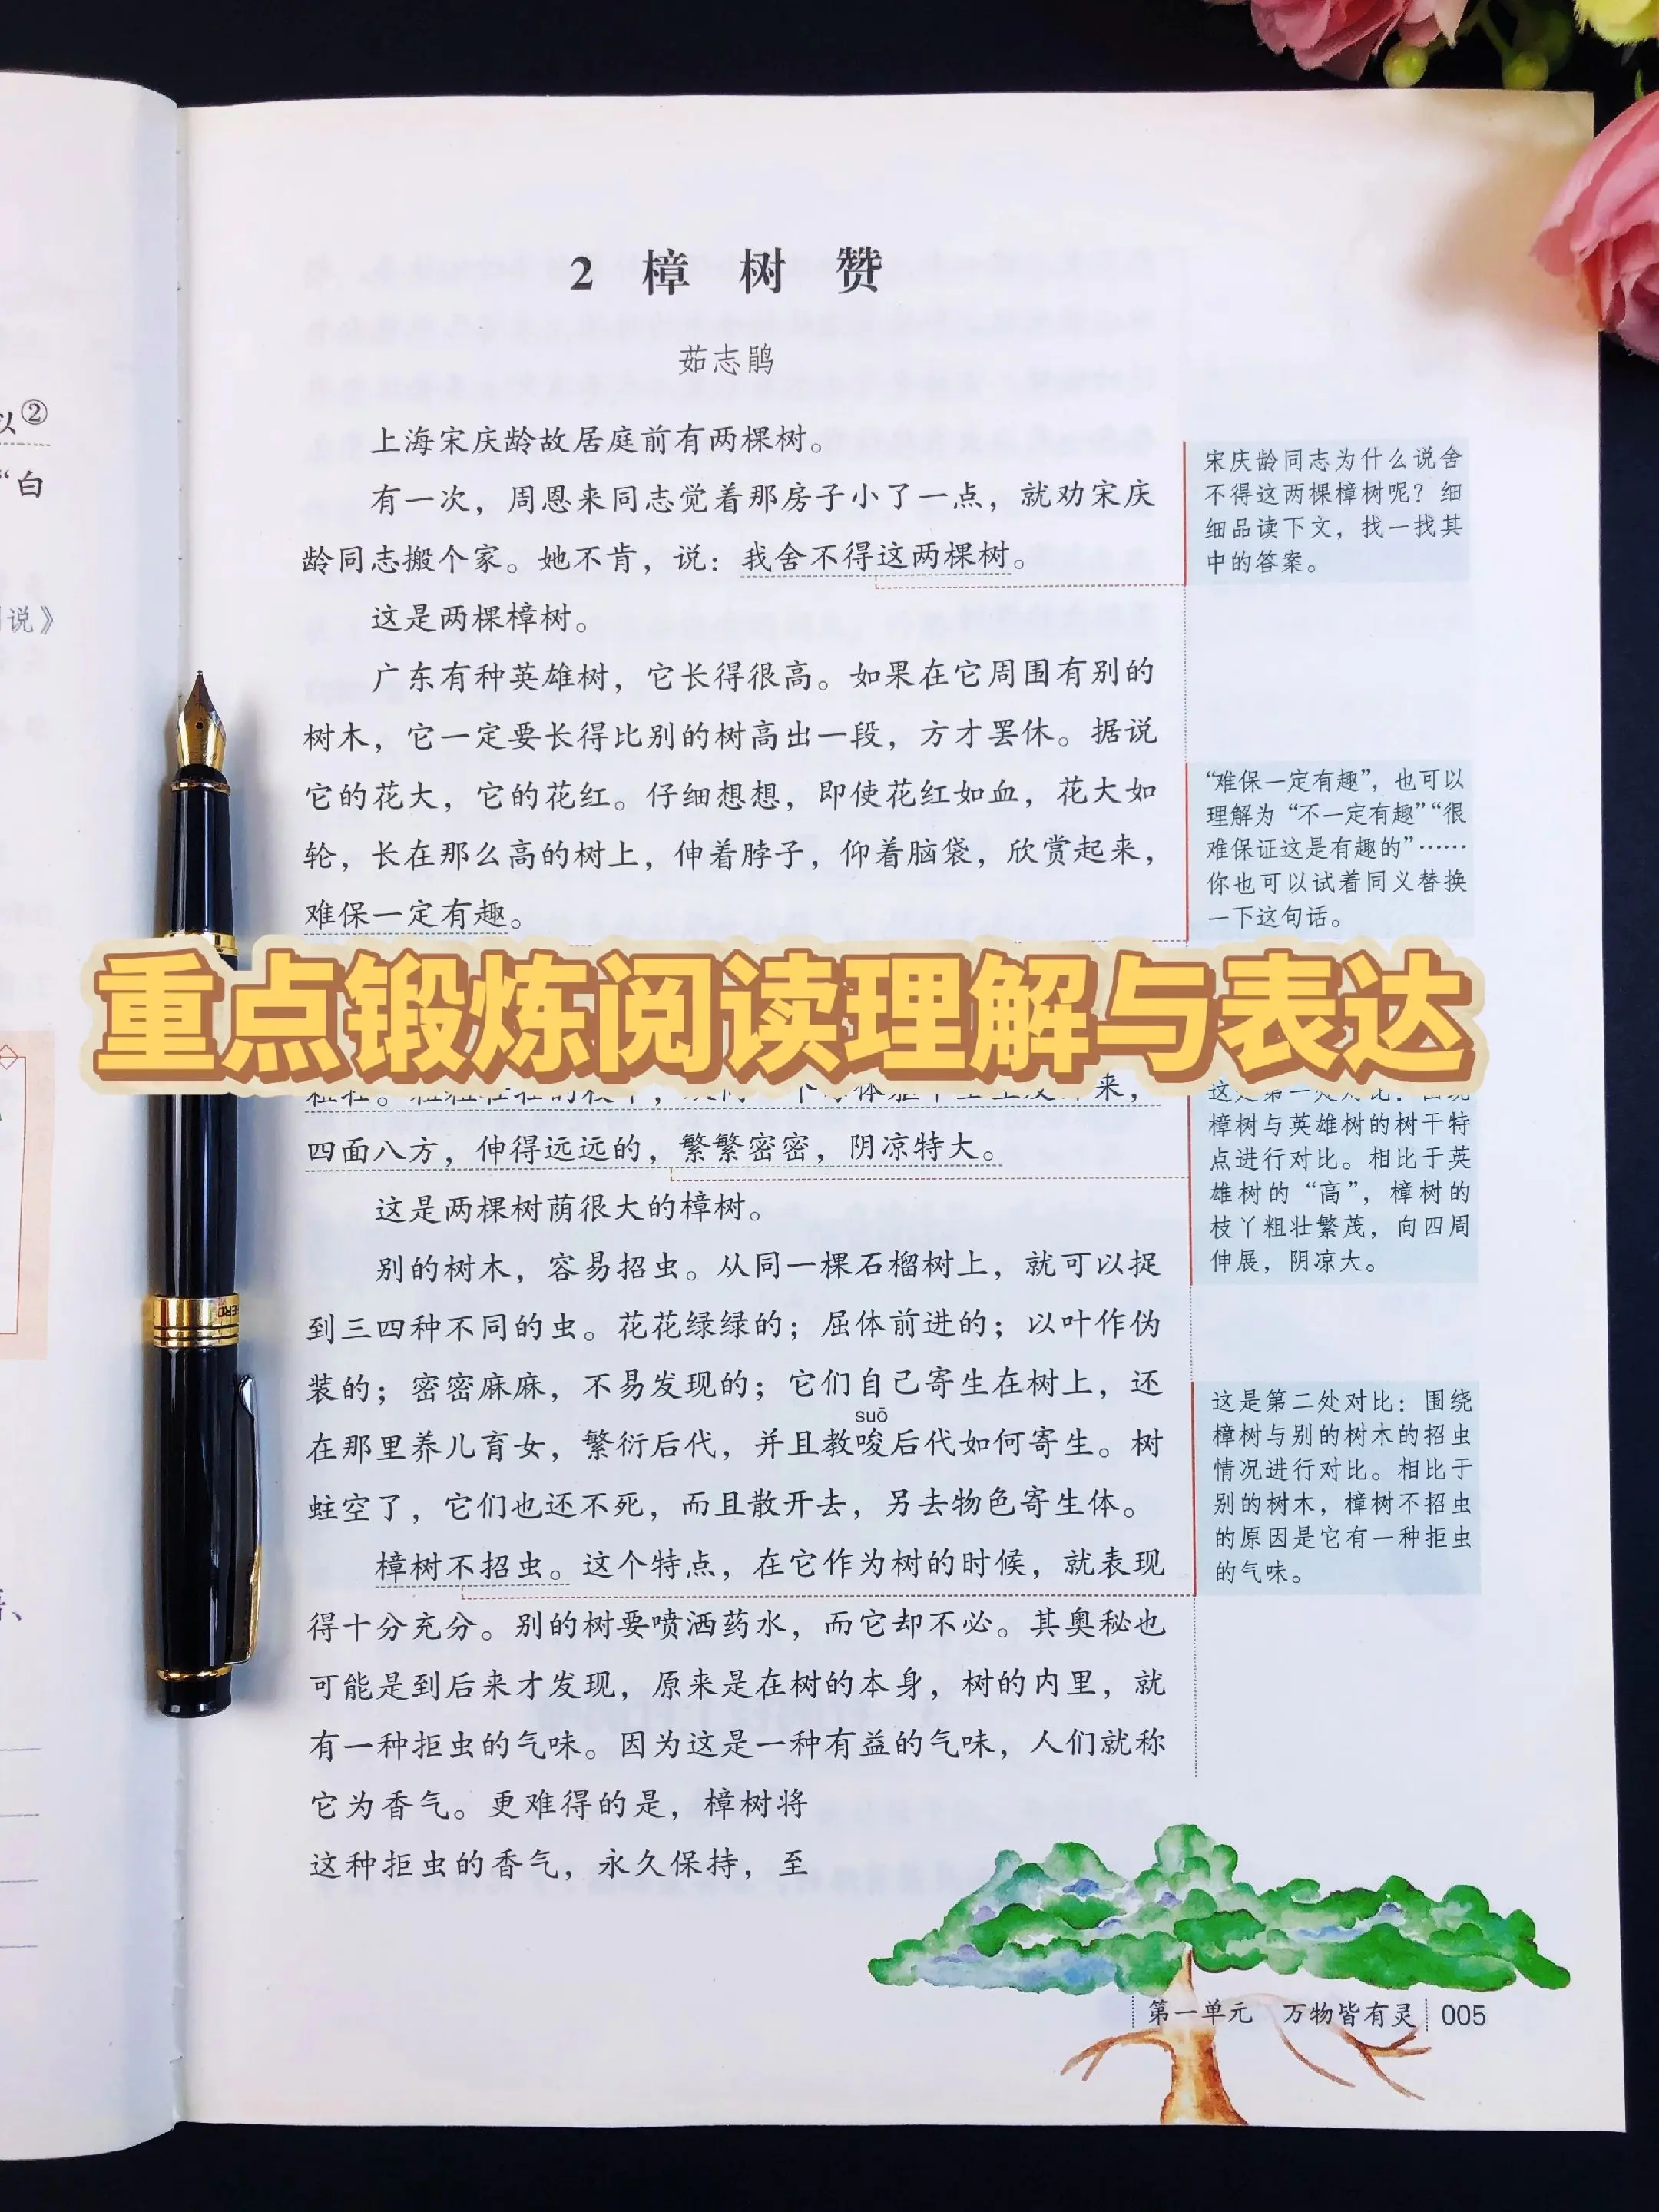 以②
“白
说》
2 樟树赞
茹志鹃
上海宋庆龄故居庭前有两棵树。
有一次，周恩来同志觉着那房子小了一点，就劝宋庆
龄同志搬个家。她不肯，说：我舍不得这两棵树。
这是两棵樟树。
广东有种英雄树，它长得很高。如果在它周围有别的
树木，它一定要长得比别的树高出一段，方才罢休。据说
它的花大，它的花红。仔细想想，即使花红如血，花大如
轮，长在那么高的树上，伸着脖子，仰着脑袋，欣赏起来，
难保一定有趣。
宋庆龄同志为什么说舍
不得这两棵樟树呢？细
细品读下文，找一找其
中的答案。
“难保一定有趣”，也可以
理解为“不一定有趣”“很
难保证这是有趣的”……
你也可以试着同义替换
一下这句话。
重点锻炼阅读理解与表达
四面八方，伸得远远的，繁繁密密，阴凉特大。
这是两棵树荫很大的樟树。
别的树木，容易招虫。从同一棵石榴树上，就可以捉
到三四种不同的虫。花花绿绿的；屈体前进的；以叶作伪
装的；密密麻麻，不易发现的；它们自己寄生在树上，还
suō
在那里养儿育女，繁衍后代，并且教唆后代如何寄生。树
蛀空了，它们也还不死，而且散开去，另去物色寄生体。
樟树不招虫。这个特点，在它作为树的时候，就表现
得十分充分。别的树要喷洒药水，而它却不必。其奥秘也
可能是到后来才发现，原来是在树的本身，树的内里，就
有一种拒虫的气味。因为这是一种有益的气味，人们就称
它为香气。更难得的是，樟树将
这种拒虫的香气，永久保持，至
樟树与英雄树的树干特
点进行对比。相比于英
雄树的“高”，樟树的
枝丫粗壮繁茂，向四周
伸展，阴凉大。
这是第二处对比：围绕
樟树与别的树木的招虫
情况进行对比。相比于
别的树木，樟树不招虫
的原因是它有一种拒虫
的气味。
第一单元 万物皆有灵 005